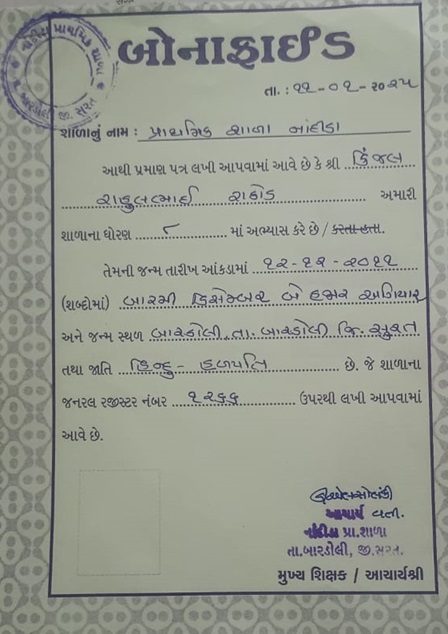 નાંદીડા પ્રાથમિક શાળા
તા. બારડોલી જી. સુરત
બોનાફાઈડ
તા. : ૨૨-૦૧-૨૦૨૫
શાળાનું નામ : પ્રાથમિક શાળા નાંદીડા
આથી પ્રમાણ પત્ર લખી આપવામાં આવે છે કે શ્રી કિંજલ
રાહુલભાઈ રાઠોડ અમારી
શાળાના ધોરણ ૮ માં અભ્યાસ કરે છે / કરતા હતા.
તેમની જન્મ તારીખ આંકડામાં ૧૨-૧૨-૨૦૧૧
(શબ્દોમાં) બારમી ડિસેમ્બર બે હજાર અગિયાર
અને જન્મ સ્થળ બારડોલી તા. બારડોલી જિ. સુરત
તથા જાતિ હિન્દુ - હળપતિ છે. જે શાળાના
જનરલ રજીસ્ટર નંબર ૧૨૬૬ ઉપરથી લખી આપવામાં
આવે છે.
આચાર્ય વતી.
નાંદીડા પ્રા.શાળા
તા.બારડોલી, જી.સુરત.
મુખ્ય શિક્ષક / આચાર્યશ્રી